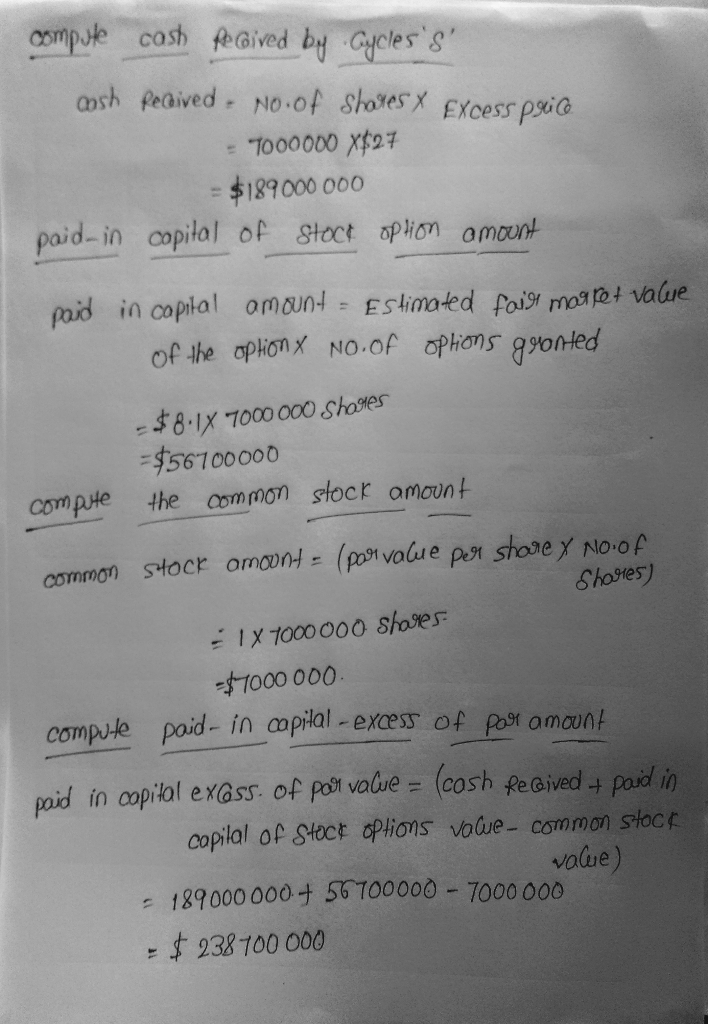 compute cash Received by Cycles 'S'
cash Received = NO.of Shares X Excess price
= 7000000 X $27
= $189000 000
paid-in capital of stock option amount
paid in capital amount = Estimated fair market value
of the option X NO.OF options granted
= $8.1X 7000 000 shares
= $56700000
compute the common stock amount
common stock amount = (par value per share X No.of
Shares)
= 1 X 7000000 shares
= $7000 000.
compute paid-in capital-excess of par amount
paid in capital excess. of par value = (cash Received + paid in
capital of stock options value - common stock
value)
= 189000 000 + 56700000 - 7000 000
= $ 238700 000